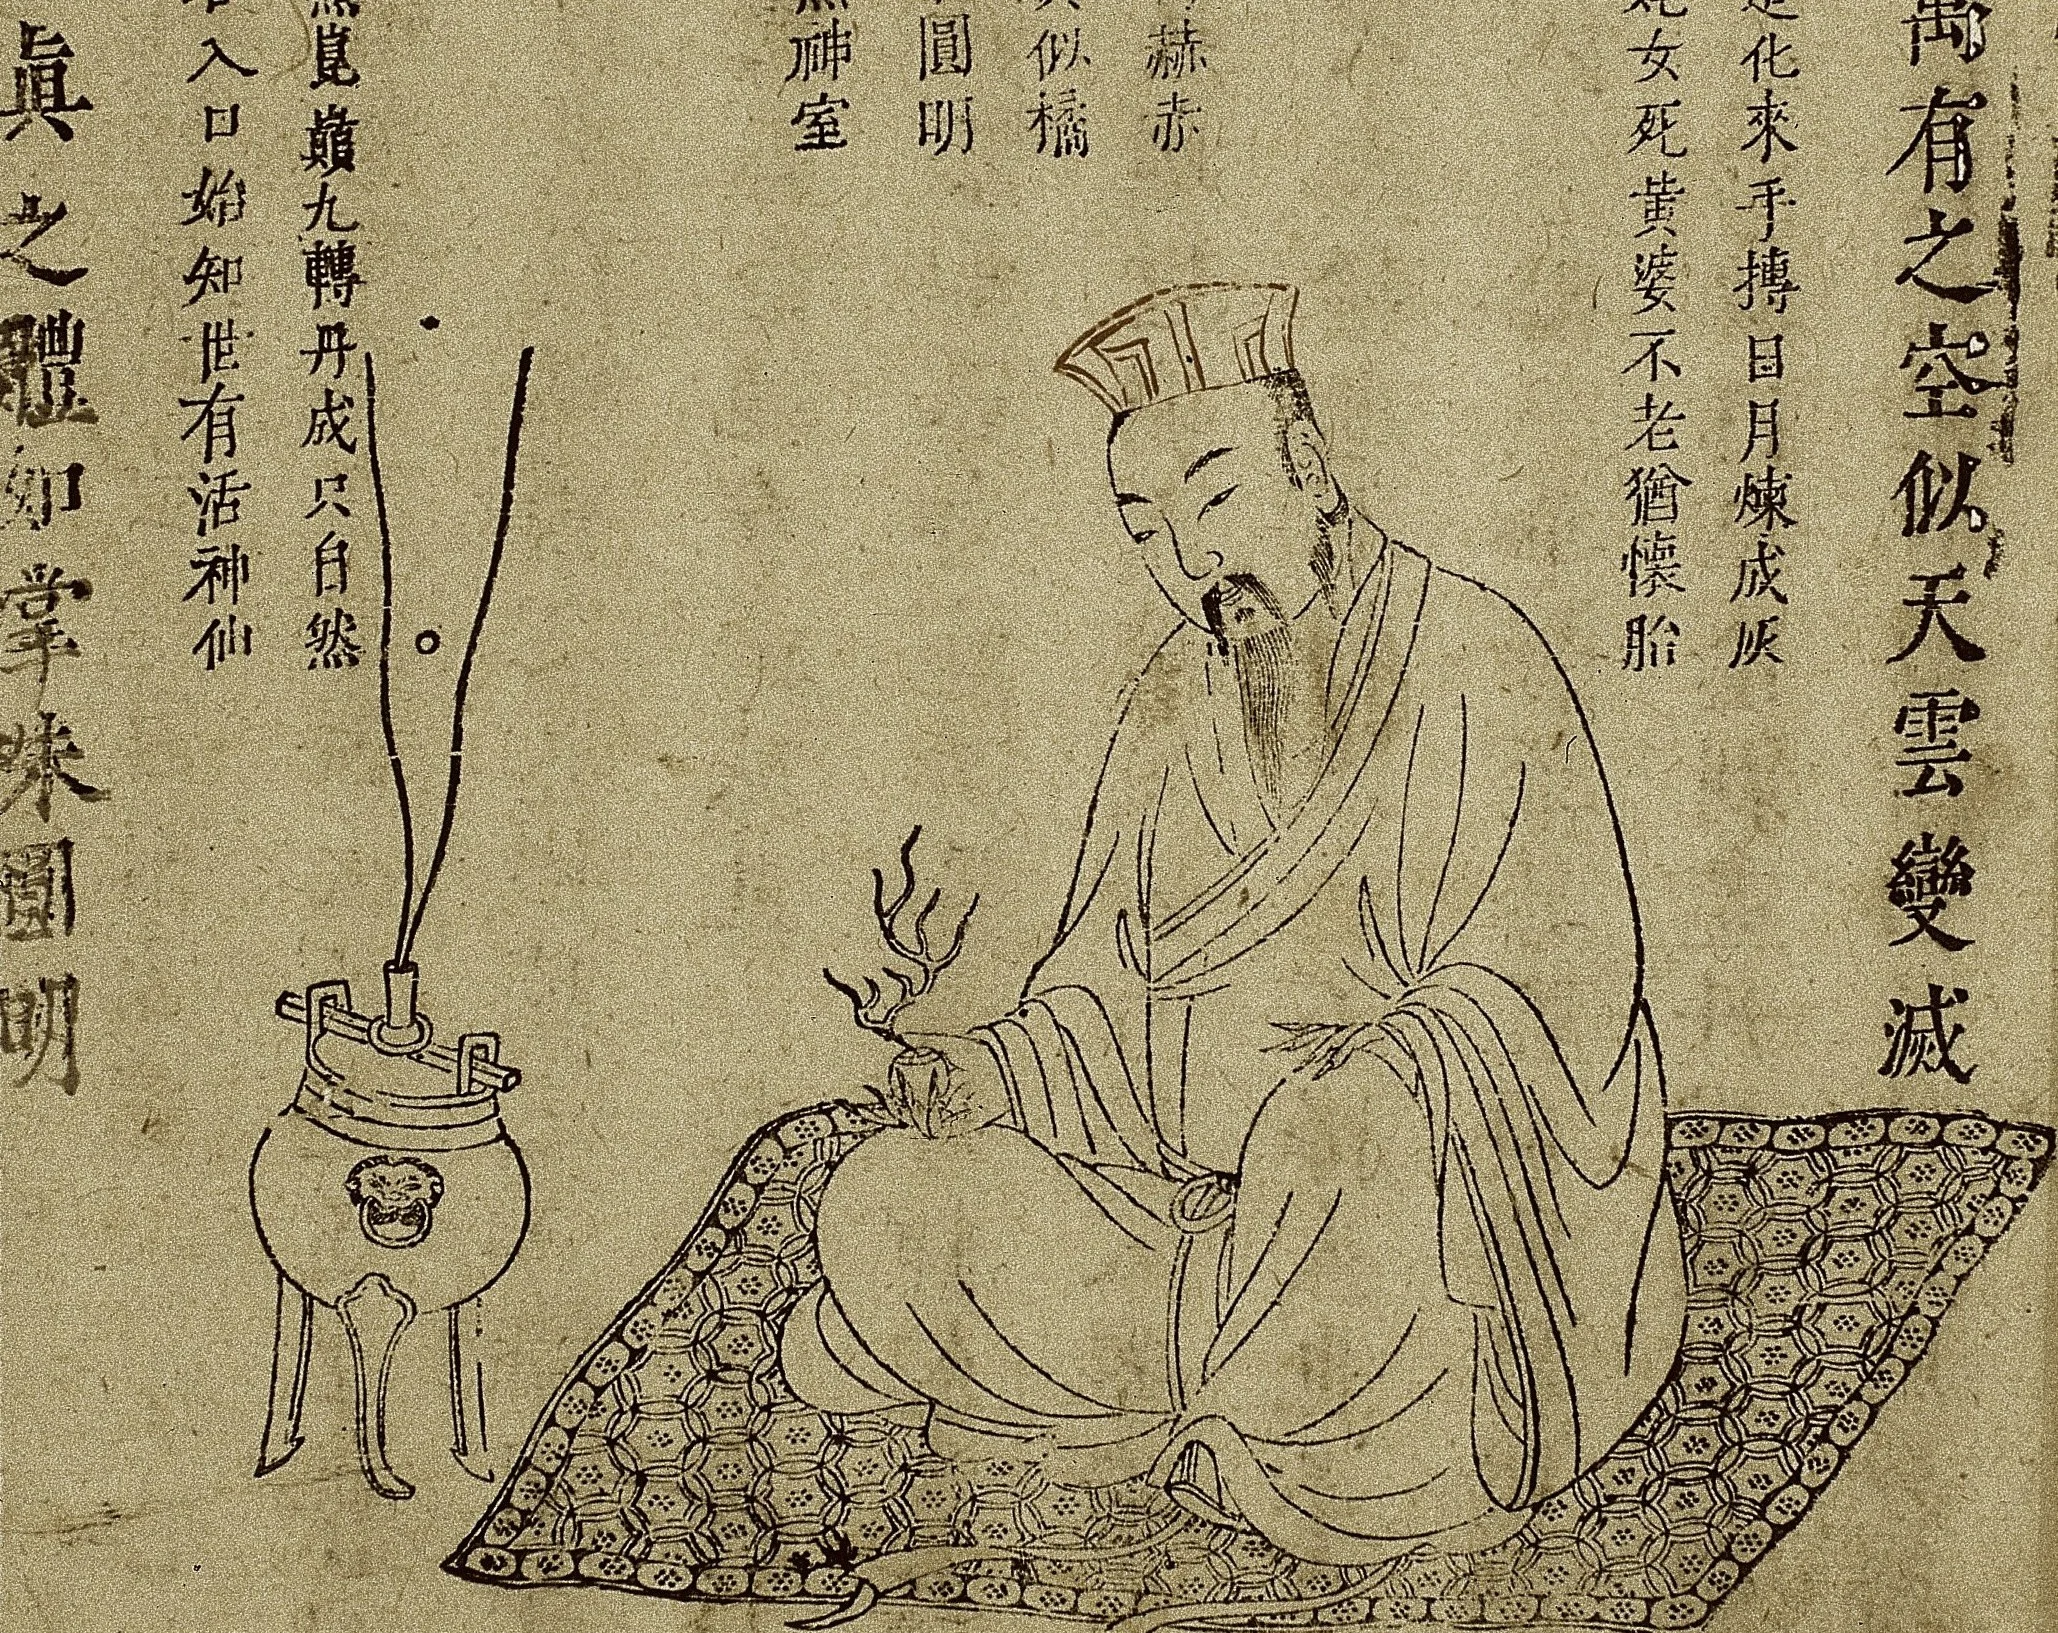 有之空似天雲變滅
化來手摶日月煉成灰
女死黃婆不老猶懷胎
赫赤
似橘
圓明
神室
崑巔九轉丹成只自然
入口始知世有活神仙
眞之體如掌珠圓明